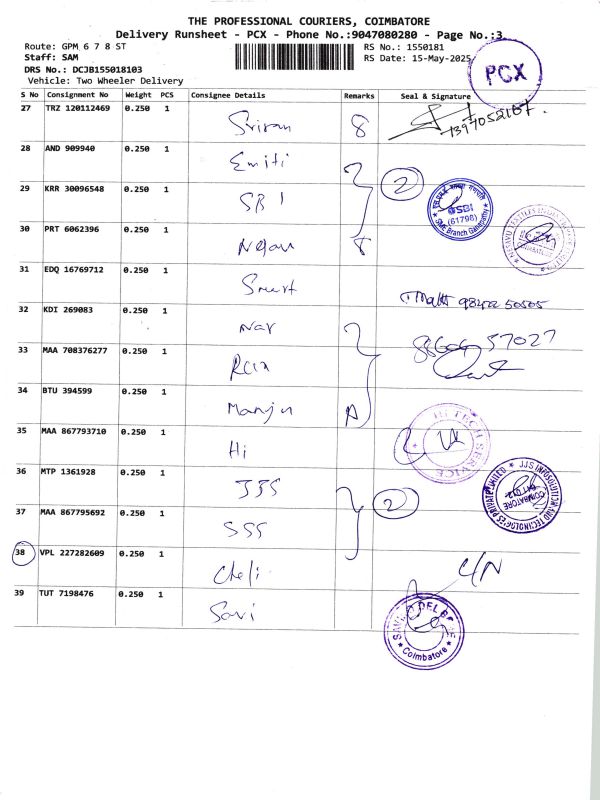 THE PROFESSIONAL COURIERS, COIMBATORE
Delivery Runsheet - PCX - Phone No.:9047080280 - Page No.:3
Route: GPM 6 7 8 ST
RS No.: 1550181
Staff: SAM
RS Date: 15-May-2025
DRS No.: DCJB155018103
Vehicle: Two Wheeler Delivery
PCX
S No Consignment No Weight PCS Consignee Details Remarks Seal & Signature
27 TRZ 120112469 0.250 1 Sriran 8
28 AND 909940 0.250 1 Emiti
2
29 KRR 30096548 0.250 1 SBI
SBI
(61798)
SME Branch Ganapathy
30 PRT 6062396 0.250 1
31 EDQ 16769712 0.250 1
32 KDI 269083 0.250 1 Nav
33 MAA 708376277 0.250 1
34 BTU 394599 0.250 1 Manju A
35 MAA 867793710 0.250 1 Hi
HI TECH SERVICE
36 MTP 1361928 0.250 1 JJS
2
JJS INFOSOLUTION AND TECHNOLOGIES PRIVATE LIMITED
COIMBATORE
641 012
37 MAA 867795692 0.250 1 SSS
38 VPL 227282609 0.250 1 Cheli
39 TUT 7198476 0.250 1 Savi
Coimbatore